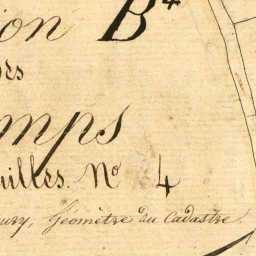 ion B⁴
es
mps
uilles. Nº 4
ury, Géomètre du Cadastre.